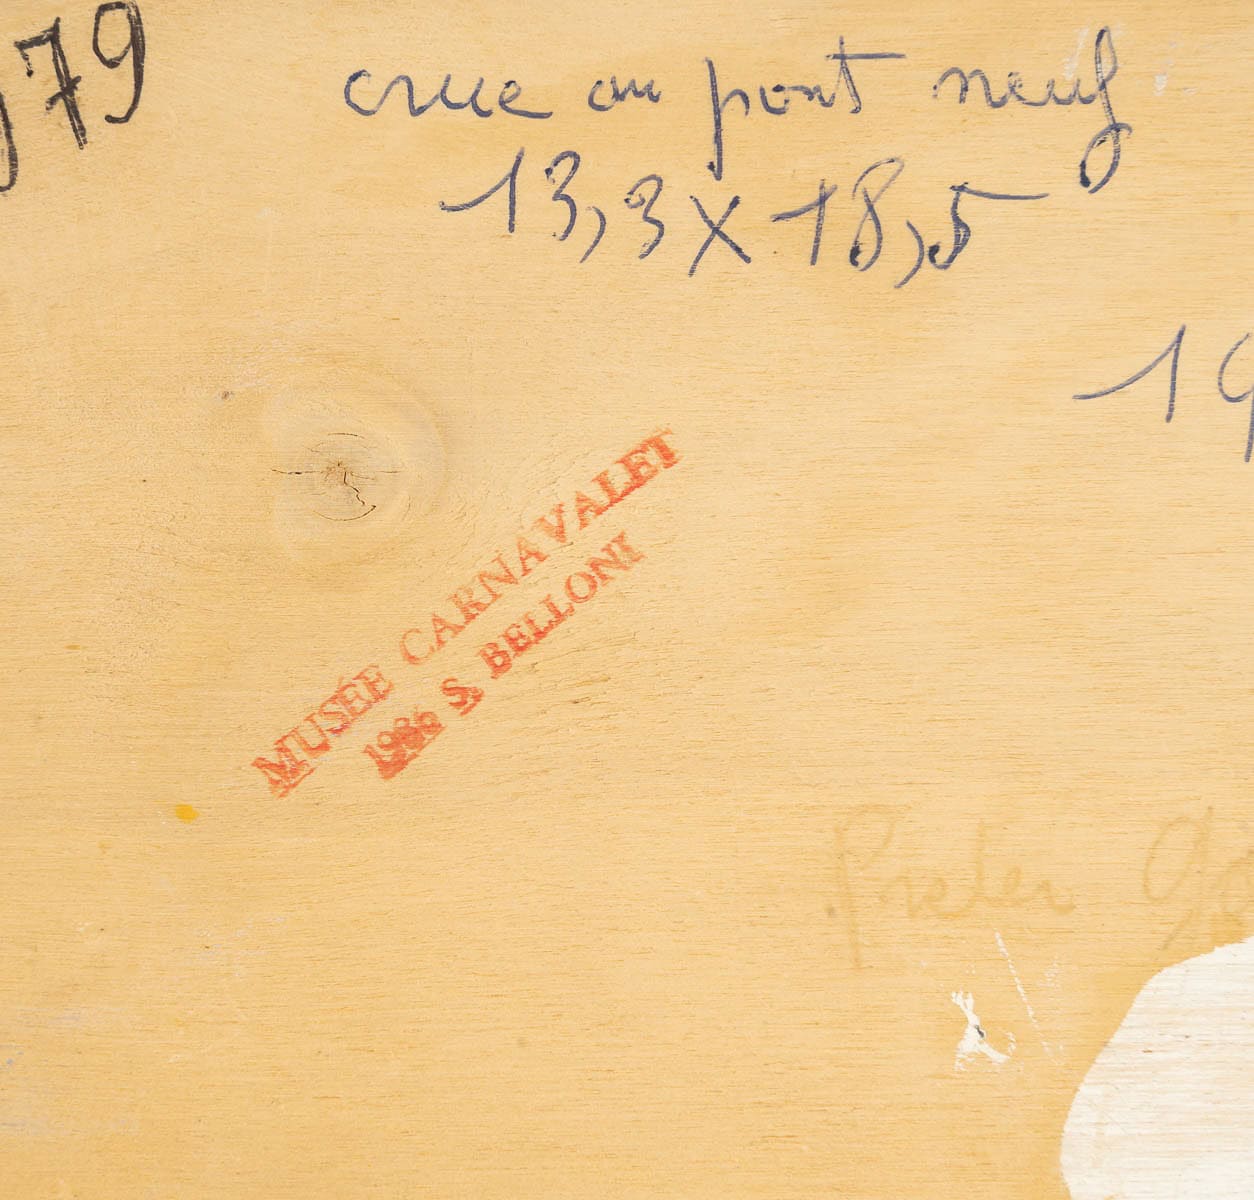 79
crue au pont neuf
13,3 X 18,5
19
MUSÉE CARNAVALET
1986 S. BELLONI